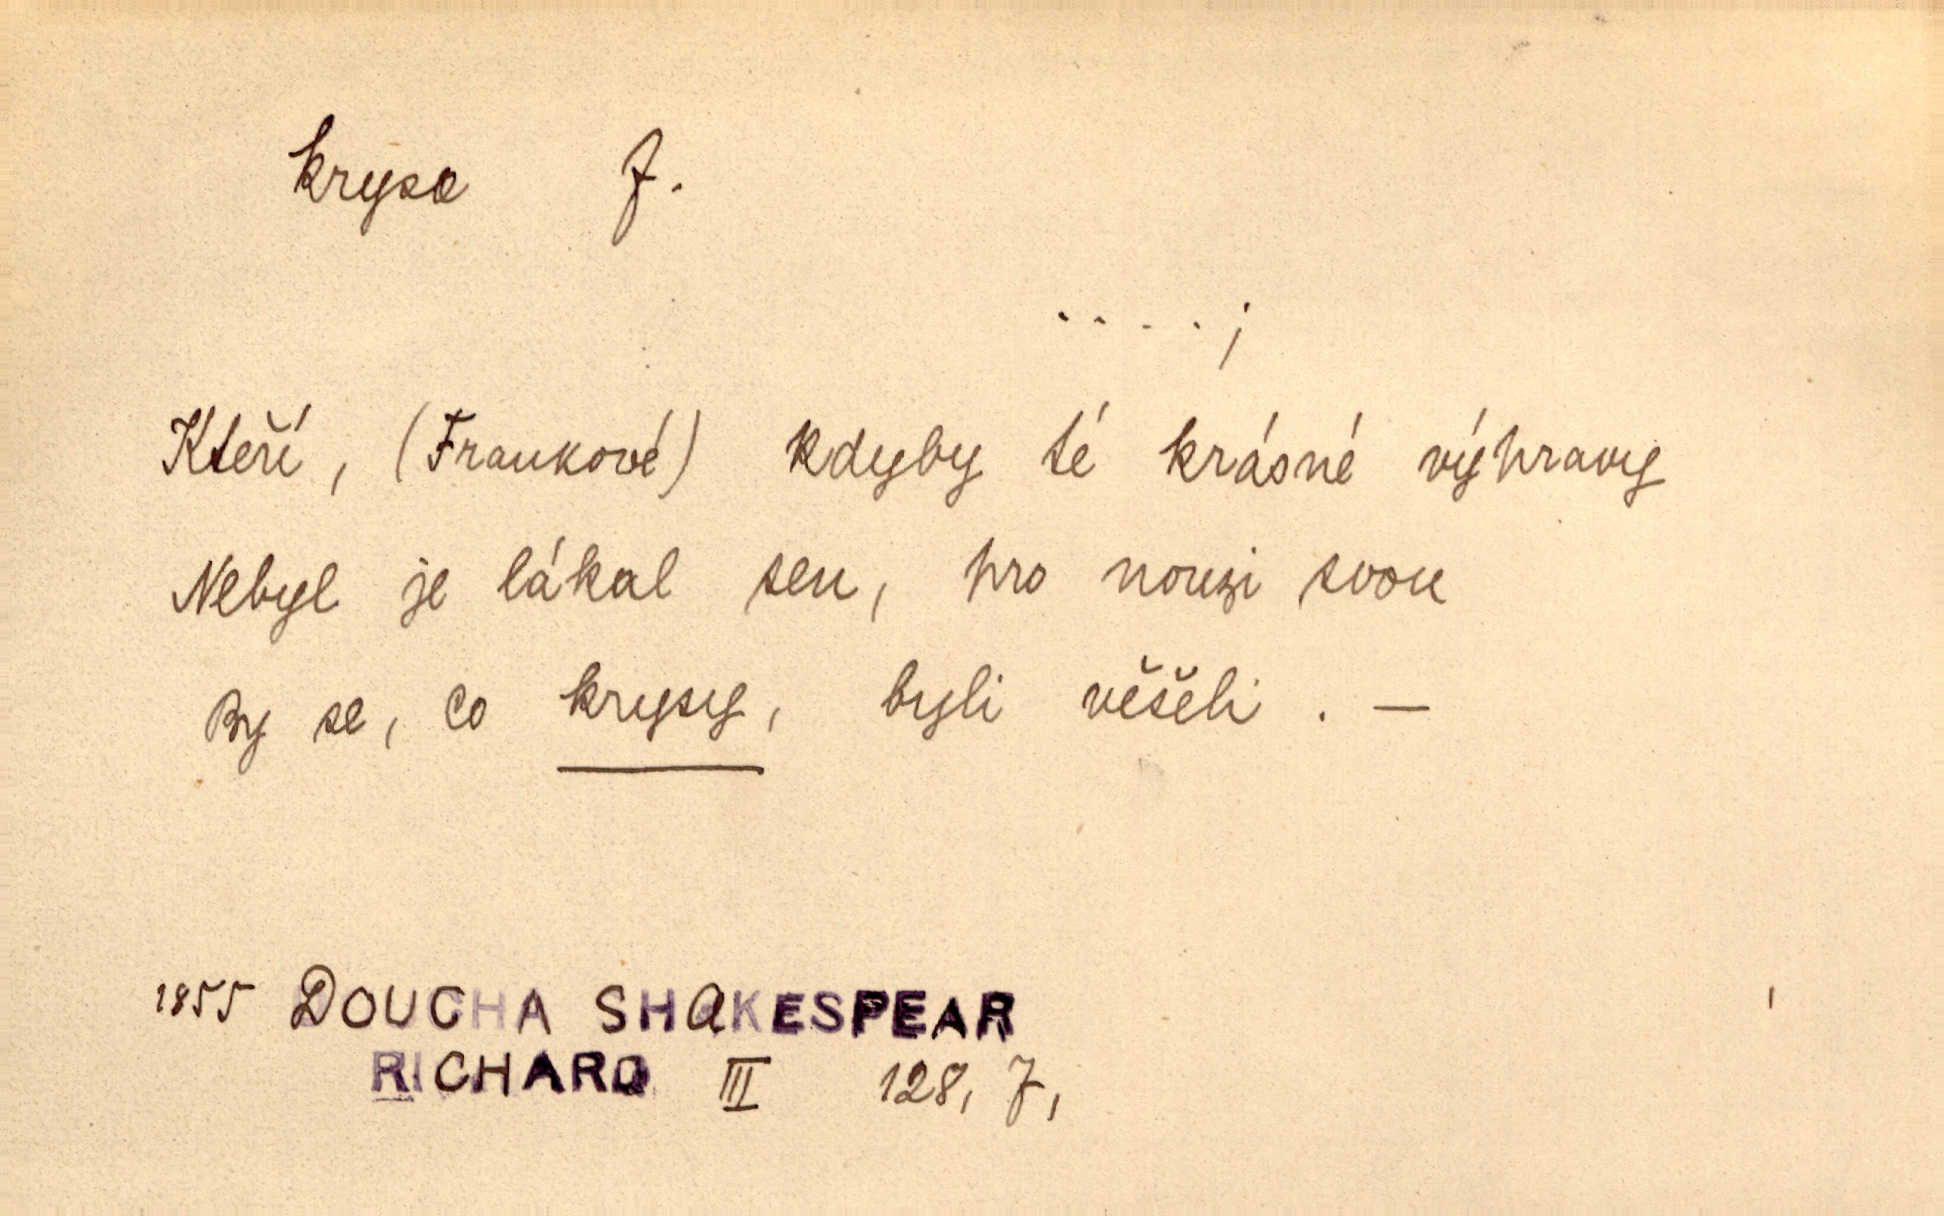 krysa f.
. . . . ;
Kteří, (Frankové) kdyby té krásné výpravy
Nebyl je lákal sen, pro nouzi svou
By se, co krysy, byli věšeli. —
1855 DOUCHA SHAKESPEAR
RICHARD III 128, 7,